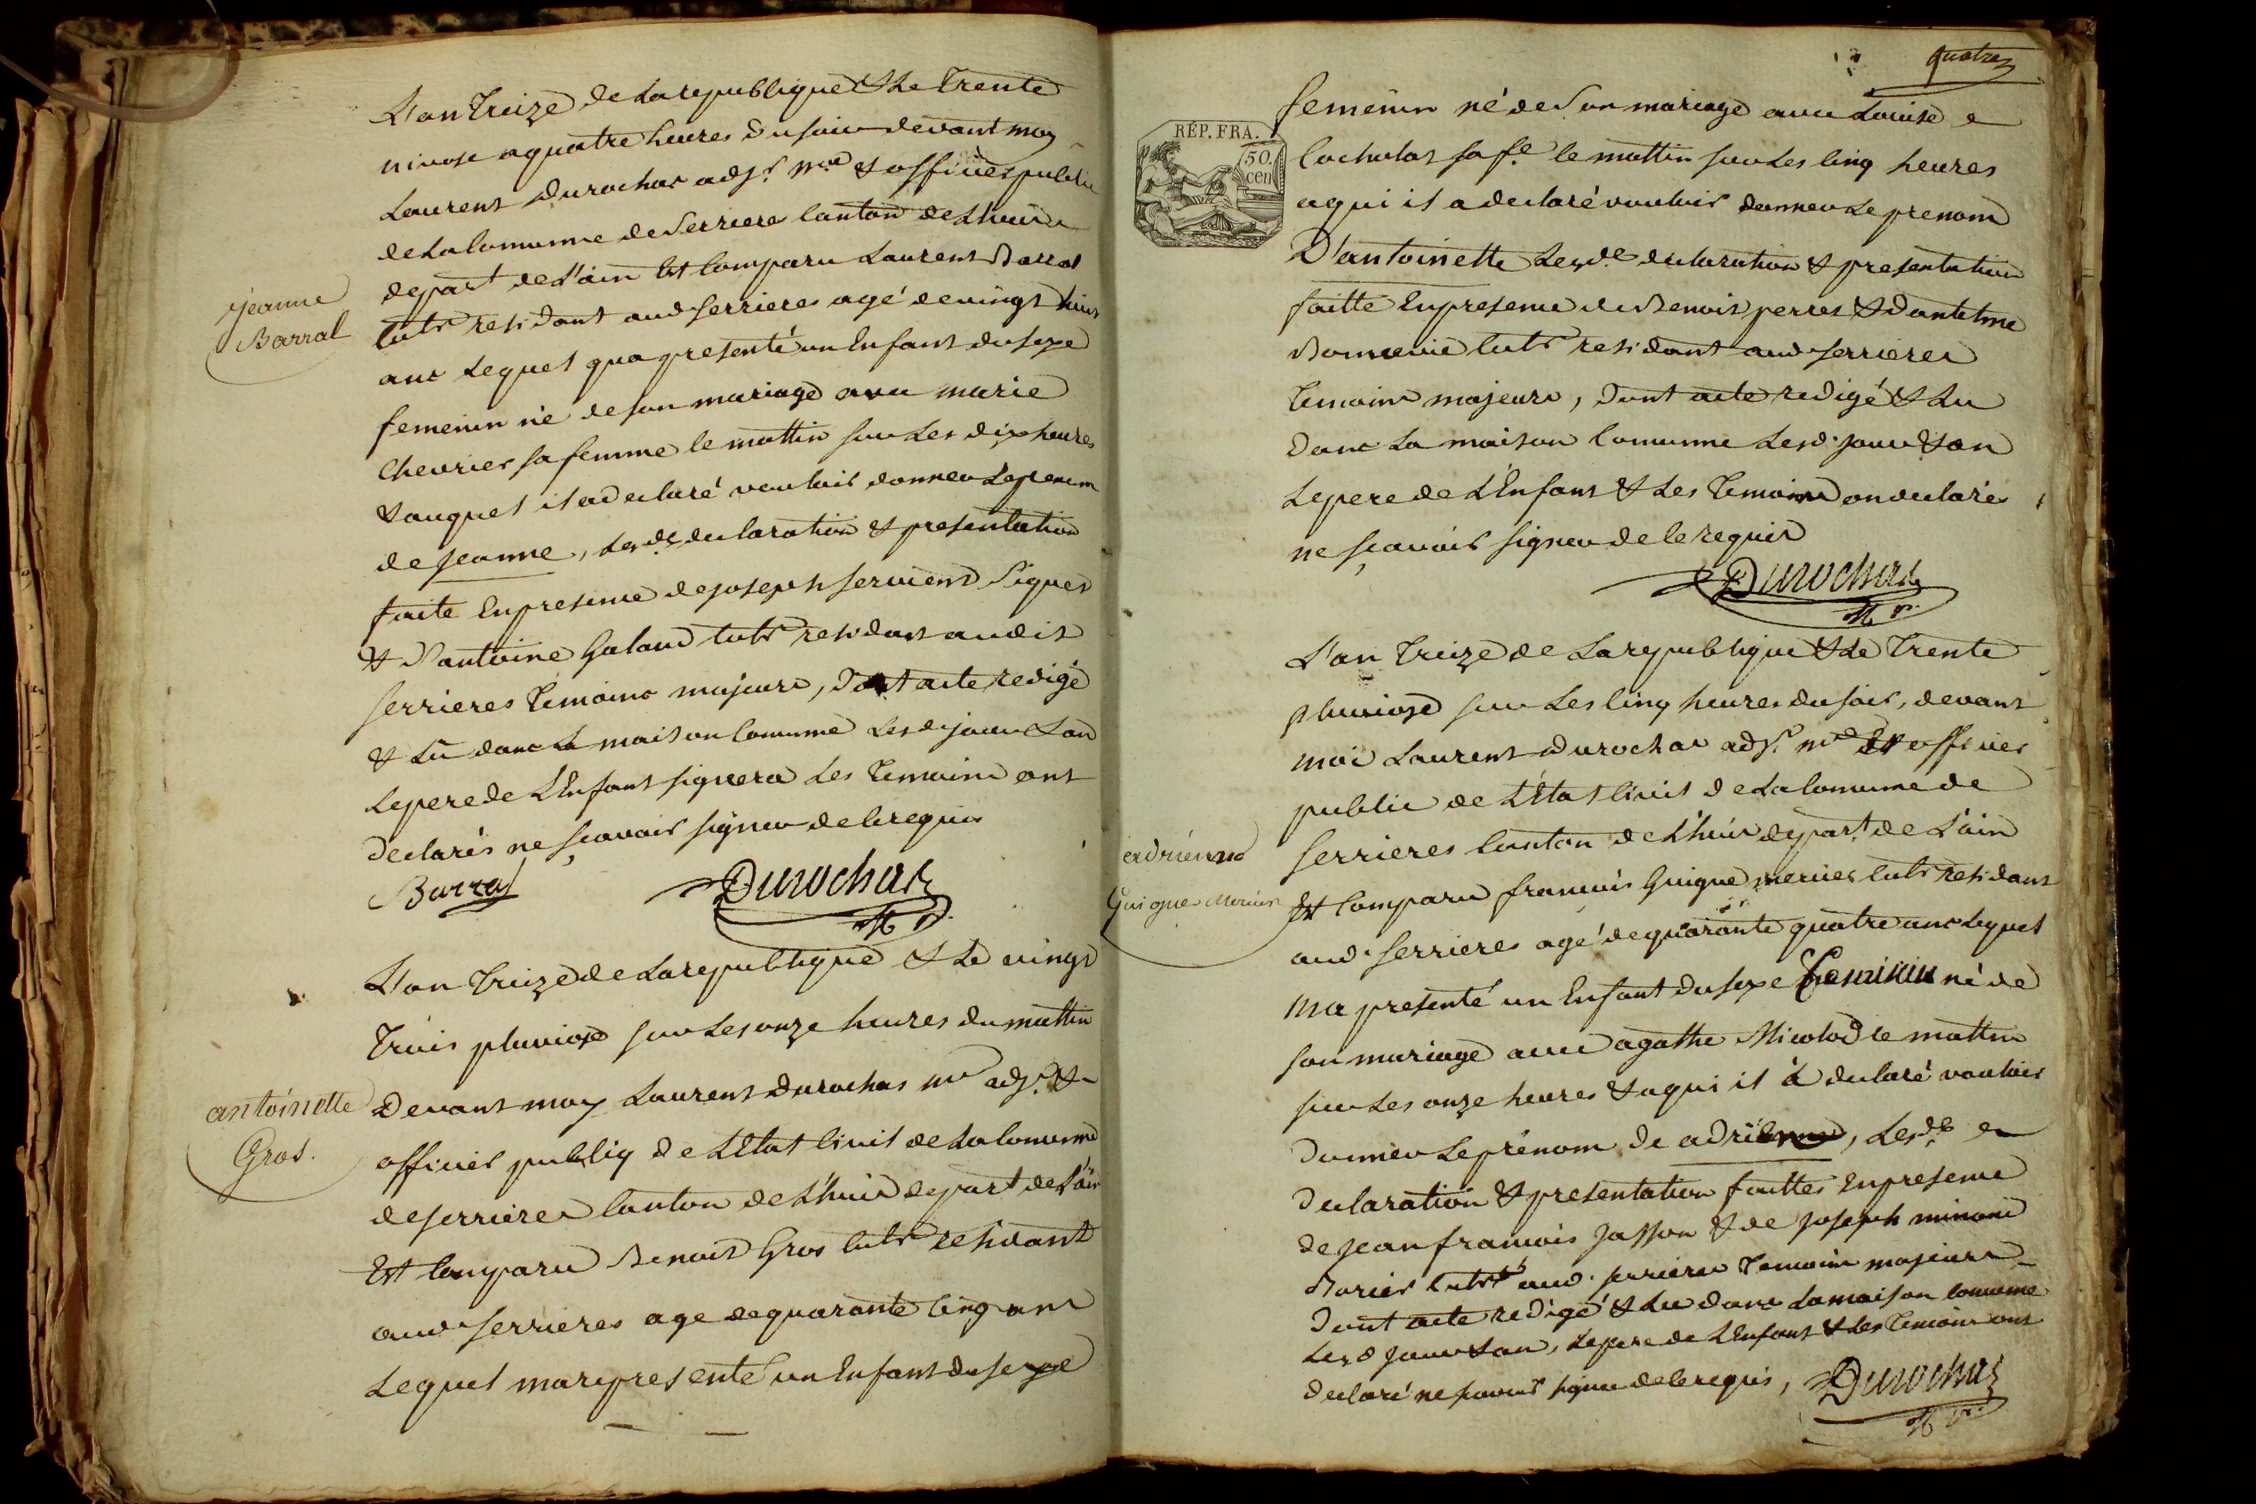 L'an treize de La republique & Le trente
nivose a quatre heures du soir devant moy
Laurent Durochas adjt. mre & officier public
de La Comunne de Serrieres Canton de L'huis
depart. de L'ain Est Comparu Laurent Barral
Cultr residant aud Serrieres agé de vingt huit
ans Lequel qua presenté un Enfant du sexe
femenin né de son mariage avec marie
Chevrier sa femme le mattin sur Les dix heures
& auquel il a declaré vouloir donner Le prenom
de Jeanne, Lesde declaration & presentation
faite En presence de joseph servient Piquet
& D'antoine Galand Cultr residant audit
Serrieres temoins majeurs, Dont acte redigé
& Lû dans La maison Comunne Lesd jour & an
Le pere de L'Enfant signera Les temoins ont
declarés ne sçavoir signer de ce requis
Barral Durochas
jeanne
Barral
L'an treize de La republique & Le vingt
trois pluviose sur Les onze heures du mattin
Devant moy Laurent Durochas mre adjt. &
officier publiq de L'Etat Civil de La Comunne
de Serrieres Canton de L'huis depart de L'ain
Est Comparu Benoit Gros Cultr residant
aud Serrieres age de quarante Cinq ans
Lequel mare presenté un Enfant du sexe
antoinette
Gros.
quatre
RÉP. FRA.
50.
cen
femenin né de Son mariage avec Louise
Cocholat sa fe le mattin sur Les Cinq heures
a qui il a declaré vouloir donner Le prenom
D'antoinette Lesde declaration & presentation
faitte En presence de Benoit perret & D'antelme
Cultr residant aud Serrieres
temoins majeurs, Dont acte redigé & Lu
Dans La maison Comunne Lesd. jour & an
Le pere de L'Enfant & Les temoins on declarés
ne sçavoir signer de ce requis
Durochas
L'an treize de La republique & Le trente
pluviose sur Les Cinq heures du soir, devant
moi Laurent Durochas adjt. mre Et officier
public de L'Etat Civil de La Comunne de
Serrieres Canton de L'huis depart. de L'ain
Est Comparu francois Guigue mercier Cultr residant
aud. Serrieres agé de quarante quatre ans Lequel
ma presenté un Enfant du sexe Feminin né de
son mariage avec agathe Nicolod le mattin
sur Les onze heures & a qui il à declaré vouloir
Donner Le prénom de adrienne, Lesde
Declaration & presentation faittes En presence
de jean francois Jasson & de joseph minand
Borier Cultrs aud. Serrieres temoins majeurs
Dont acte redigé & Lu dans La maison Comunne
Lesd jour & an, Le pere de L'Enfant & Les temoins ont
declaré ne savoir signer de ce requis, Durochas
adrienne
Guigue Mercier